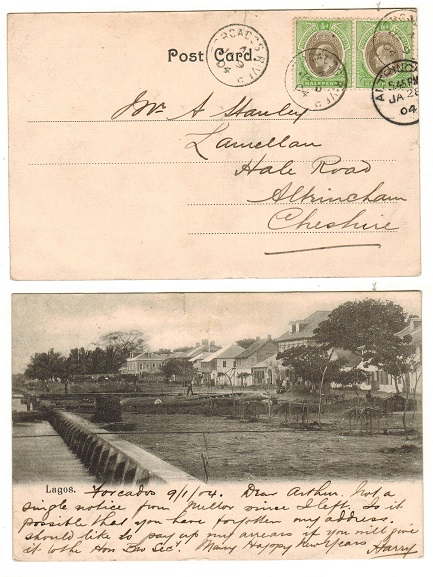 Post Card.
FORCADOS RIVER
JA 9 04
HALFPENNY
ALTRINCHAM
5.45 PM
JA 28
04
Mr A Stanley
Lamellan
Hale Road
Altrincham
Cheshire
Lagos.
Forcados 9/1/04. Dear Arthur. Not a
single notice from Mellor since I left. Is it
possible that you have forgotten my address.
should like to pay up my arrears if you will give
it to the Hon Sec. Many Happy New Years
Harry